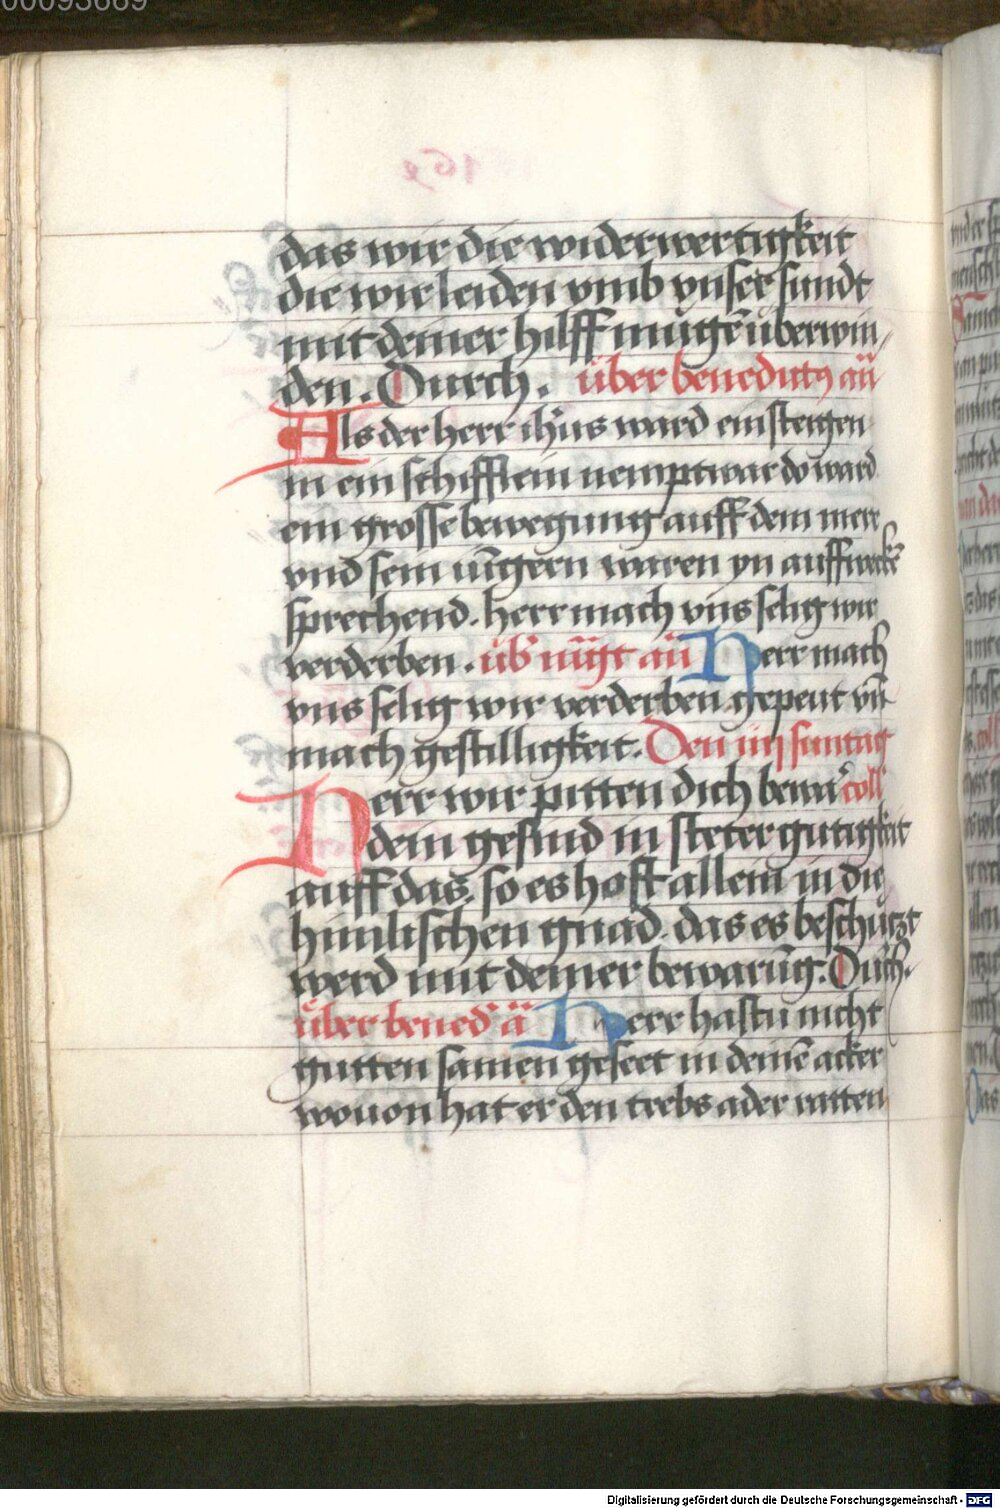 das wir die widerwertigkeit
die wir leiden vmb vnser sundt
mit deiner hilff mugē überwin„
den. Durch. über benedictꝰ añ
Als der herr ih̄us ward einsteigen
in ein schifflein nempt war do ward
ein grosse bewegung auff dem mere
vnd sein iūgern waren yn auffweckē
sprechend. herr mach vns selig wir
verderben. üb̾ mḡt añ Herr mach
vns selig wir verderben. gepeut vn̄
mach gestilligkeit. Den iiij suntag
Herr wir pitten dich bewar coll̾
dein gesind in steter gutigkeit
auff das. so es hofft allein in die
himlischen gnad. das es beschüczt
werd mit deiner bewarūg. Durch.
über bened̾ ā Herr hastu nicht
gutten samen geseet in deinē acker
wouon hat er den trebs ader ratten
Digitalisierung gefördert durch die Deutsche Forschungsgemeinschaft - DFG